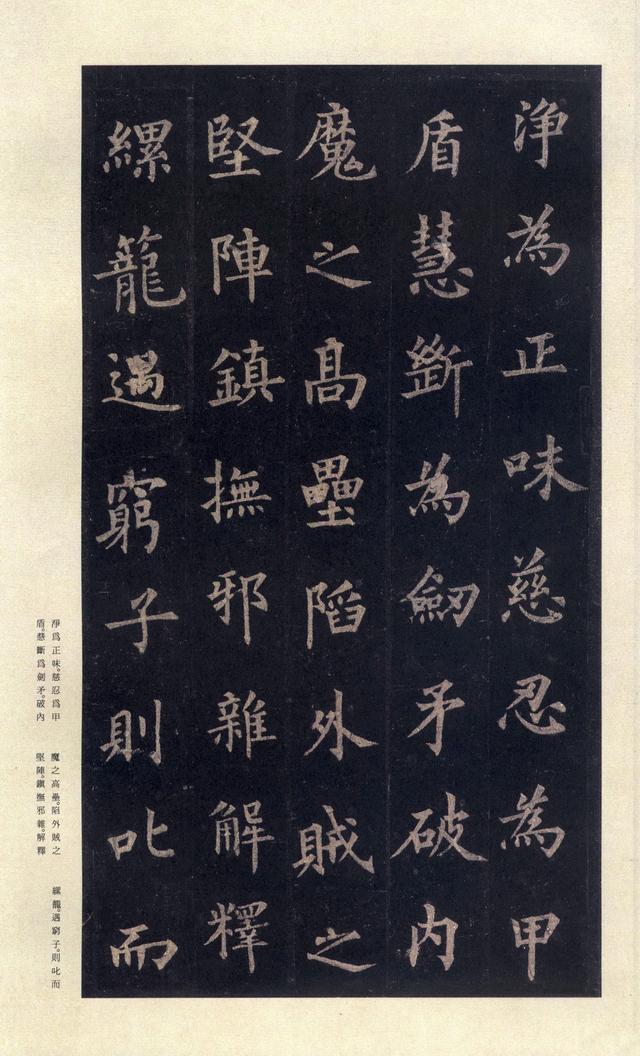 浄為正味慈忍為甲
盾慧斷為劒矛破内
魔之髙壘陷外賊之
堅陣鎮撫邪雜解釋
縲籠遇窮子則叱而
淨爲正味。慈忍爲甲
盾。慧斷爲劍矛。破內
魔之高壘。陷外賊之
堅陣。鎭撫邪雜。解釋
縲籠。遇窮子。則叱而